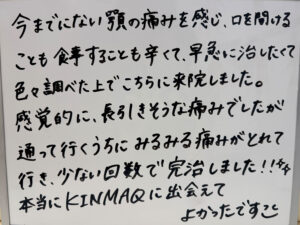 今までにない顎の痛みを感じ、口を開ける
ことも食事することも辛くて、早急に治したくて
色々調べた上でこちらに来院しました。
感覚的に、長引きそうな痛みでしたが
通って行くうちにみるみる痛みがとれて
行き、少ない回数で完治しました!!
本当にKINMAQに出会えて
よかったです